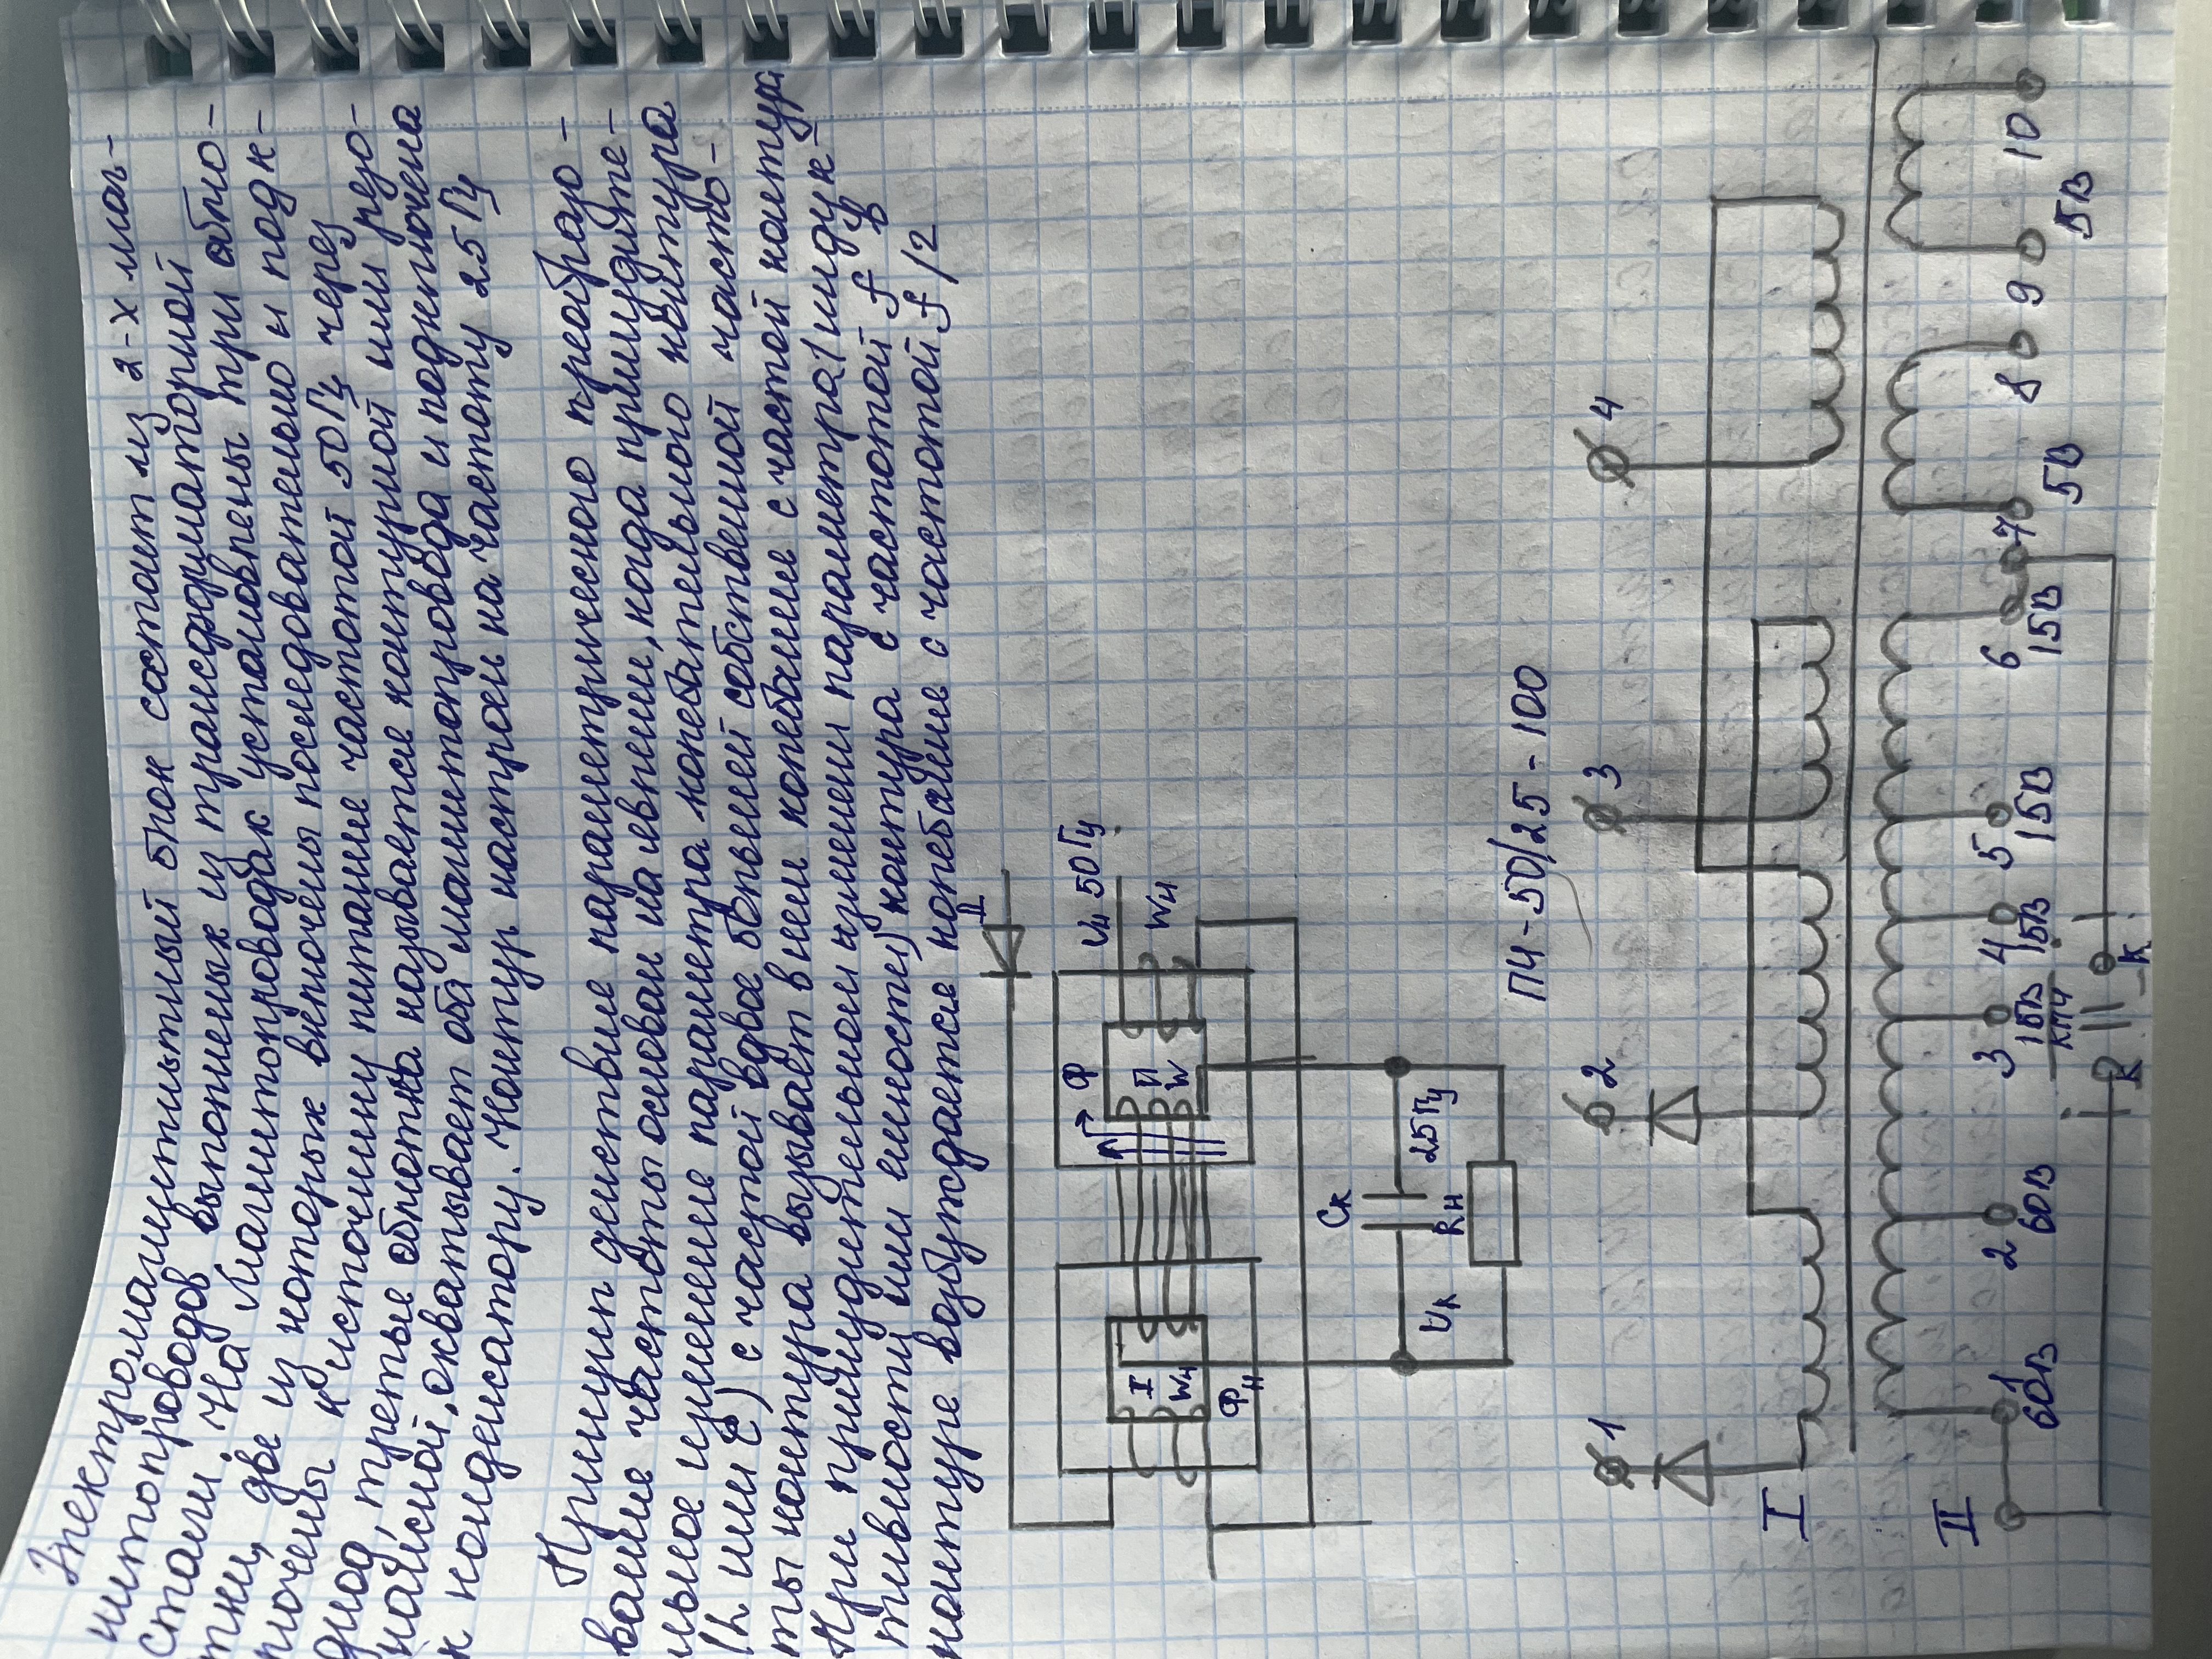 Электромагнитный блок состоит из 2-х маг-
нитопроводов выполненых из трансформаторной
стали. На магнитопроводах установлены три обмо-
тки, две из которых включены последовательно и подк-
лючены к источнику питание частотой 50 Гц через
диод, третье обмотка называется контурной или резо-
нансной, охватывает оба магнитопровода и подключена
к конденсатору. Контур настроен на частоту 25 Гц
Принцип действие параметрического преобразо-
вание частоты основан на явлении, когда принудите-
льное изменение параметра колебательного контура
(L или C) с частотой вдвое большей собственной часто-
ты контура вызывает в нем колебание с частотой контура
При принудительном изменении параметра (индук-
тивности или емкости) контура с частотой f в
контуре возбуждается колебание с частотой f/2
Д
U~ 50 Гц
Ф
I
II
W
Wн
Wн
Фн
Cк
Uк
25 Гц
Rн
ПЧ-50/25-100
1 2 3 4
I
II
1 2 3 4 5 6 7 8 9 10
60В 60В 15В 15В 15В 15В 5В 5В
К КПЧ К